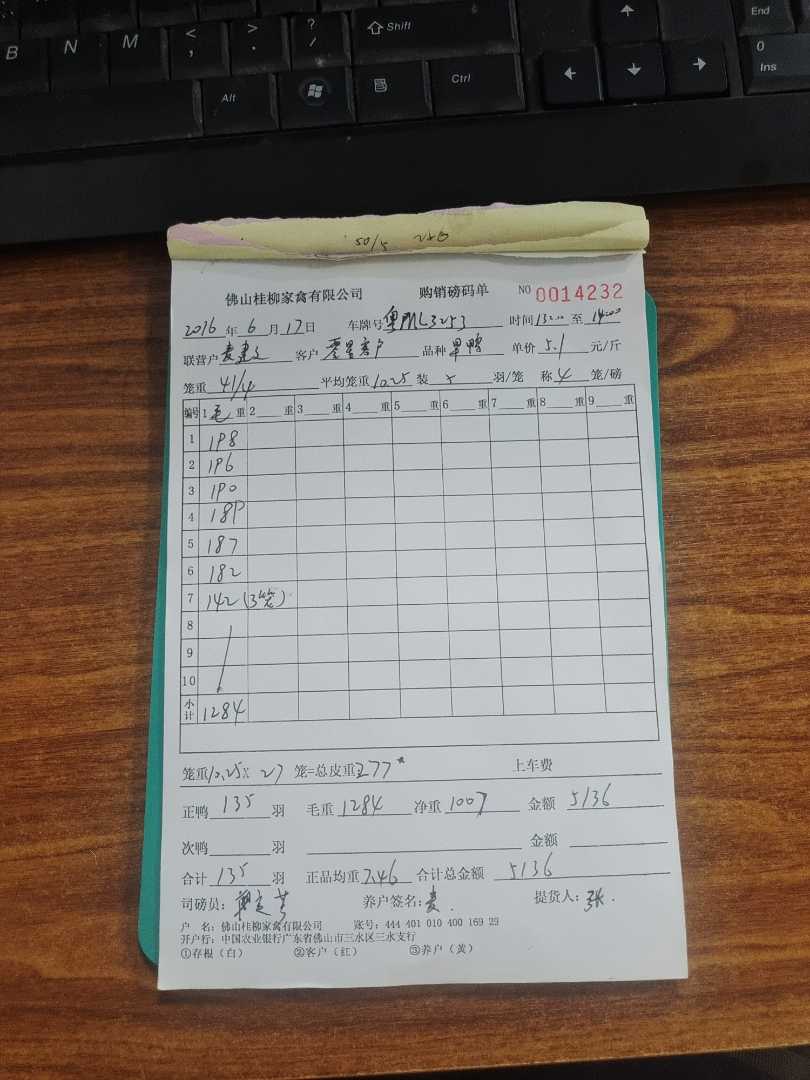 B N M < , > . ? / Shift End
Alt Ctrl 0 Ins
50/5
佛山桂柳家禽有限公司 购销磅码单 NO 0014232
2016年6月17日 车牌号粤ML3253 时间13:00至14:00
联营户麦建文 客户零星客户 品种旱鸭 单价5.1元/斤
笼重41/4 平均笼重10.25装5羽/笼 称4笼/磅
编号 1毛重 2重 3重 4重 5重 6重 7重 8重 9重
1 198
2 196
3 190
4 189
5 187
6 182
7 142(3笼)
8
9
10
小计 1284
笼重10.25X27笼=总皮重277 上车费
正鸭135羽 毛重1284净重1007 金额5136
次鸭羽 金额
合计135羽 正品均重7.46合计总金额5136
司磅员: 养户签名:麦. 提货人:张.
户 名:佛山桂柳家禽有限公司 账号:444 401 010 400 169 23
开户行:中国农业银行广东省佛山市三水区三水支行
①存根(白) ②客户(红) ③养户(黄)